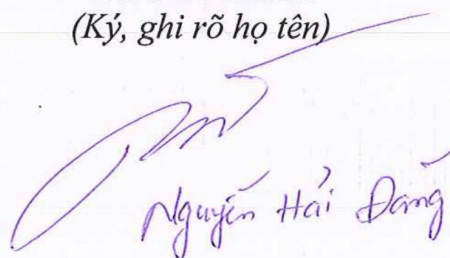 (Ký, ghi rõ họ tên)
Nguyễn Hải Đăng